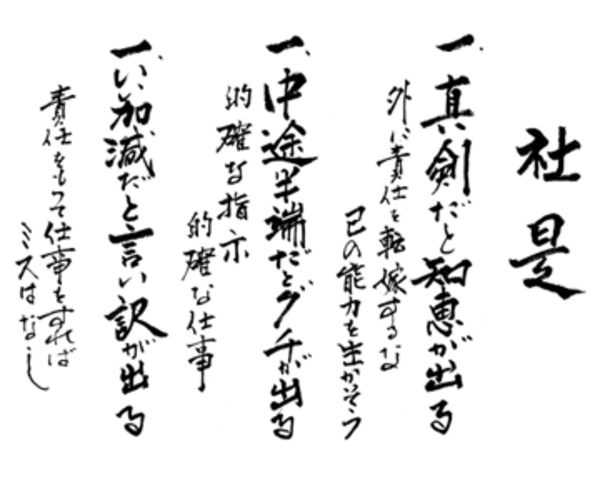 社是
一、真剣だと知恵が出る
外に責任を転嫁するな
己の能力を生かそう
一、中途半端だとグチが出る
的確な指示
的確な仕事
一、いい加減だと言い訳が出る
責任をもって仕事をすれば
ミスはなし